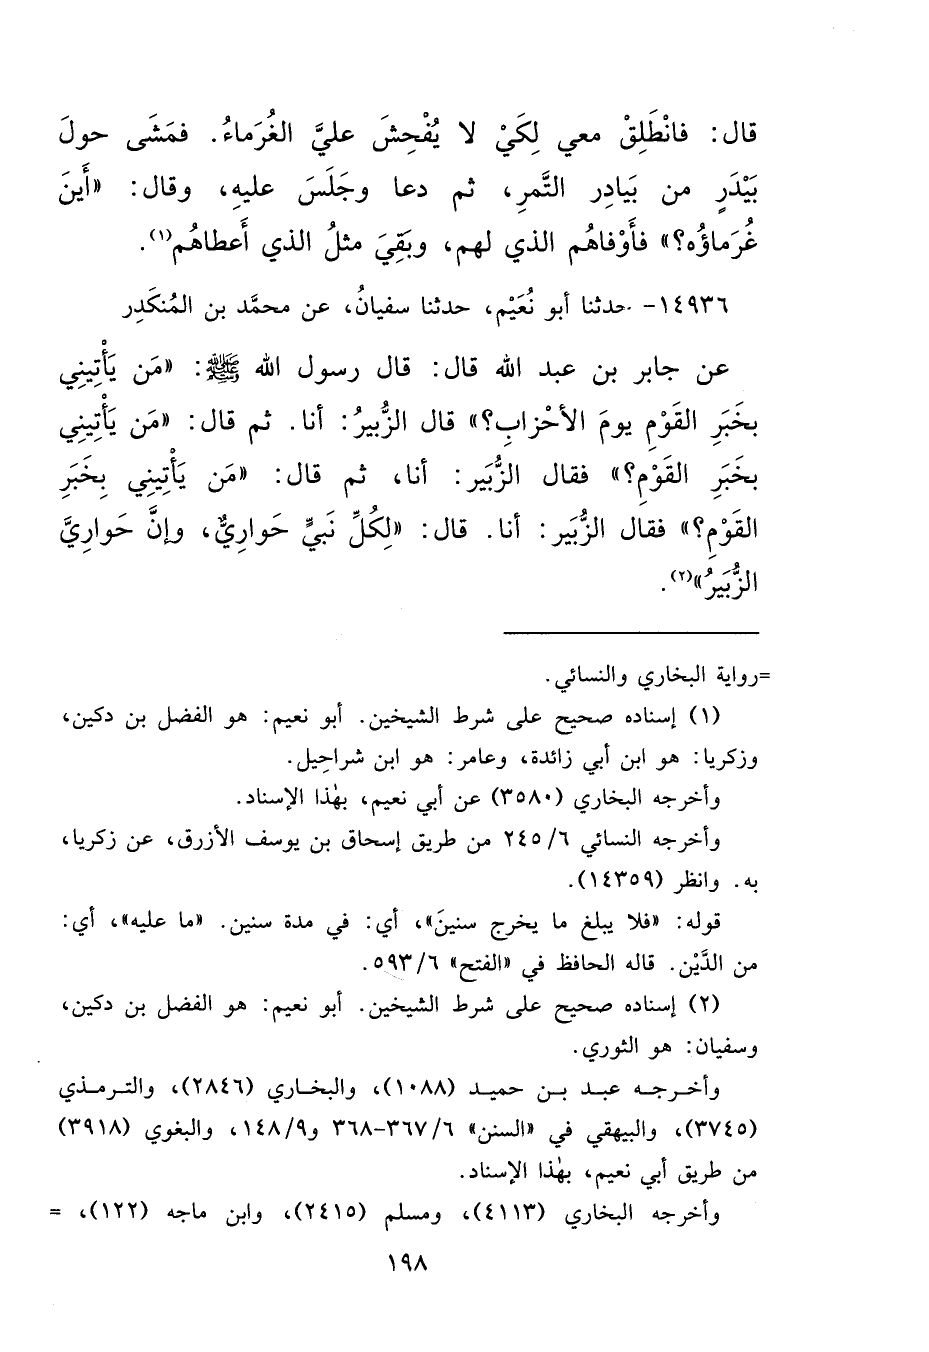 قال: فانْطَلِقْ معي لِكَيْ لا يُفْحِشَ عليَّ الغُرَماءُ. فمَشَى حولَ
بَيْدَرٍ من بَيَادِر التَّمرِ، ثم دعا وجَلَسَ عليهِ، وقال: «أَينَ
غُرَماؤُه؟» فأَوْفاهُم الذي لهم، وبَقِيَ مثلُ الذي أَعطاهُم(١).
١٤٩٣٦- حدثنا أبو نُعَيْم، حدثنا سفيانُ، عن محمَّد بن المُنكَدِر
عن جابر بن عبد الله قال: قال رسول الله ﷺ: «مَن يَأْتِيني
بخَبَرِ القَوْمِ يومَ الأحْزابِ؟» قال الزُّبيرُ: أنا. ثم قال: «مَن يَأْتِيني
بخَبَرِ القَوْمِ؟» فقال الزُّبَير: أنا، ثم قال: «مَن يَأْتِيني بِخَبَرِ
القَوْمِ؟» فقال الزُّبَير: أنا. قال: «لِكُلِّ نَبيٍّ حَوارِيٌّ، وإنَّ حَوارِيَّ
الزُّبَيرُ»(٢).
=رواية البخاري والنسائي.
(١) إسناده صحيح على شرط الشيخين. أبو نعيم: هو الفضل بن دكين،
وزكريا: هو ابن أبي زائدة، وعامر: هو ابن شراحِيل.
وأخرجه البخاري (٣٥٨٠) عن أبي نعيم، بهٰذا الإسناد.
وأخرجه النسائي ٢٤٥/٦ من طريق إسحاق بن يوسف الأزرق، عن زكريا،
به. وانظر (١٤٣٥٩).
قوله: «فلا يبلغ ما يخرج سنينَ»، أي: في مدة سنين. «ما عليه»، أي:
من الدَّيْن. قاله الحافظ في «الفتح» ٥٩٣/٦.
(٢) إسناده صحيح على شرط الشيخين. أبو نعيم: هو الفضل بن دكين،
وسفيان: هو الثوري.
وأخرجه عبد بن حميد (١٠٨٨)، والبخاري (٢٨٤٦)، والترمذي
(٣٧٤٥)، والبيهقي في «السنن» ٣٦٧/٦-٣٦٨ و١٤٨/٩، والبغوي (٣٩١٨)
من طريق أبي نعيم، بهٰذا الإسناد.
وأخرجه البخاري (٤١١٣)، ومسلم (٢٤١٥)، وابن ماجه (١٢٢)، =
١٩٨